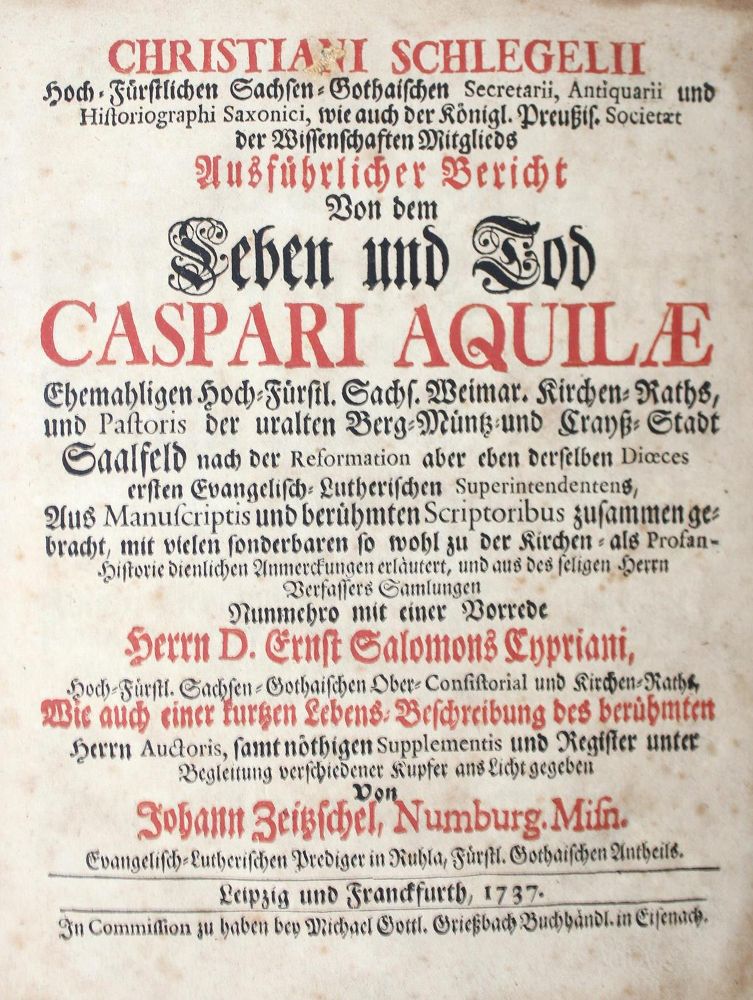 CHRISTIANI SCHLEGELII
Hoch-Fürstlichen Sachsen-Gothaischen Secretarii, Antiquarii und
Historiographi Saxonici, wie auch der Königl. Preußis. Societæt
der Wissenschaften Mitglieds
Ausführlicher Bericht
Von dem
Leben und Tod
CASPARI AQUILÆ
Ehemahligen Hoch-Fürstl. Sachs. Weimar. Kirchen-Raths,
und Pastoris der uralten Berg-Müntz-und Crayß-Stadt
Saalfeld nach der Reformation aber eben derselben Diœces
ersten Evangelisch-Lutherischen Superintendentens,
Aus Manuscriptis und berühmten Scriptoribus zusammen ge-
bracht, mit vielen sonderbaren so wohl zu der Kirchen-als Profan-
Historie dienlichen Anmerckungen erläutert, und aus des seligen Herrn
Verfassers Samlungen
Nunmehro mit einer Vorrede
Herrn D. Ernst Salomons Cypriani,
Hoch-Fürstl. Sachsen-Gothaischen Ober-Consistorial und Kirchen-Raths,
Wie auch einer kurtzen Lebens-Beschreibung des berühmten
Herrn Auctoris, samt nöthigen Supplementis und Register unter
Begleitung verschiedener Kupfer ans Licht gegeben
Von
Johann Zeitzschel, Numburg. Misn.
Evangelisch-Lutherischen Prediger in Ruhla, Fürstl. Gothaischen Antheils.
Leipzig und Franckfurth, 1737.
In Commission zu haben bey Michael Gottl. Grießbach Buchhändl. in Eisenach.